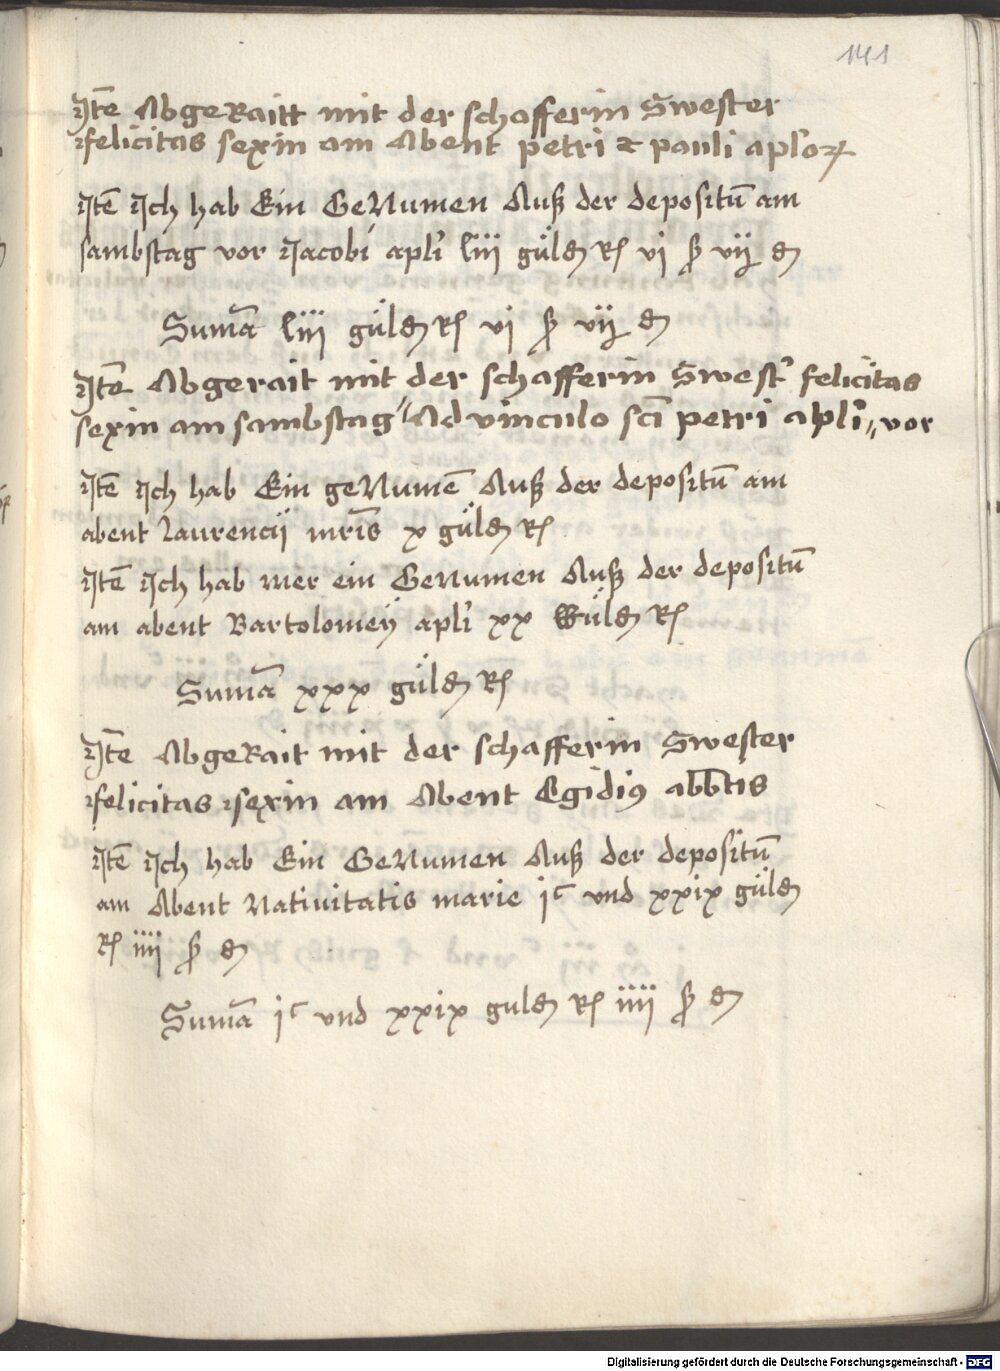 141
Jtē AbgeRaitt mit der schafferin Swester
felicitas sexin am Abent petri & pauli aplōꝝ
Jtē Jch hab Ein GeNumen Auß der depositū am
sambstag vor Jacobi apl̄i liii güldn̄ Rſ vi ß vij dn̄
Sum̄a liii güldn̄ Rſ vi ß vij dn̄
Jtē Abgerait mit der schafferin Swest̄ felicitas
sexin am sambstag Ad vinculo scī petri apl̄i vor
Jtē Jch hab Ein geNumē Auß der depositū am
abent laurencij mr̄is x güldn̄ Rſ
Jtē Jch hab mer ein GeNumen Auß der depositū
am abent Bartolomeÿ apl̄i xx Güldn̄ Rſ
Sum̄a xxx güldn̄ Rſ
Jtē AbgeRait mit der schafferin Swester
felicitas sexin am Abent Egidiꝰ abb̄tis
Jtē Jch hab Ein GeNumen Auß der depositū
am Abent Natiuitatis marie jᶜ vnd xxix güldn̄
Rſ iiii ß dn̄
Sum̄a jᶜ vnd xxix guldn̄ Rſ iiii ß dn̄
Digitalisierung gefördert durch die Deutsche Forschungsgemeinschaft - DFG